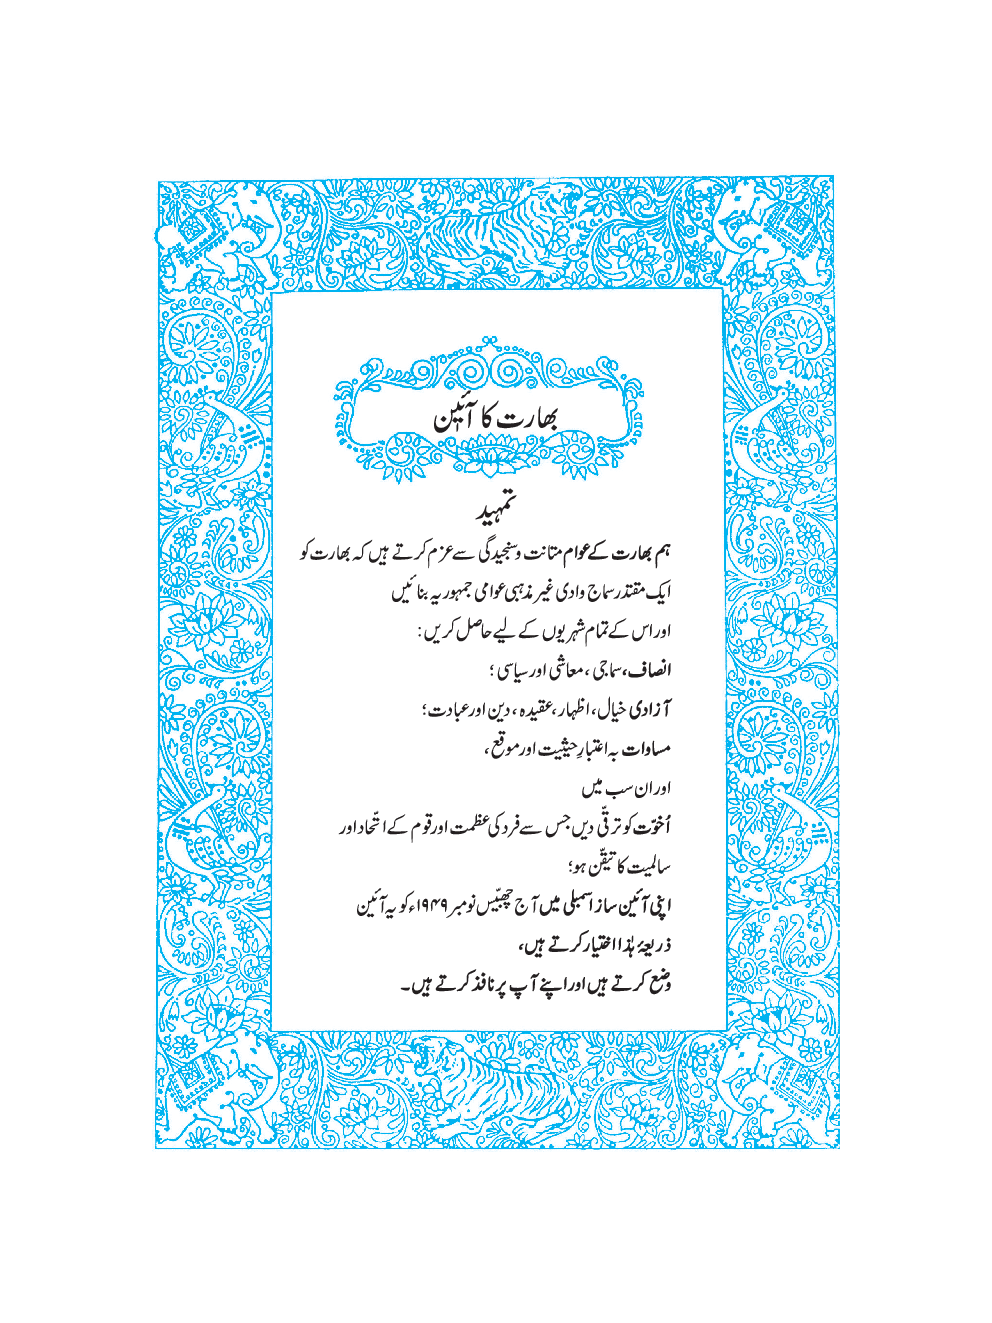 بھارت کا آئین
تمہید
ہم بھارت کے عوام متانت و سنجیدگی سے عزم کرتے ہیں کہ بھارت کو
ایک مقتدر سماج وادی غیر مذہبی عوامی جمہوریہ بنائیں
اور اس کے تمام شہریوں کے لیے حاصل کریں:
انصاف، سماجی، معاشی اور سیاسی؛
آزادی خیال، اظہار، عقیدہ، دین اور عبادت؛
مساوات بہ اعتبارِ حیثیت اور موقع،
اور ان سب میں
اُخوّت کو ترقّی دیں جس سے فرد کی عظمت اور قوم کے اتّحاد اور
سالمیت کا تیقّن ہو؛
اپنی آئین ساز اسمبلی میں آج چھبّیس نومبر ۱۹۴۹ء کو یہ آئین
ذریعۂ ہٰذا اختیار کرتے ہیں،
وضع کرتے ہیں اور اپنے آپ پر نافذ کرتے ہیں۔